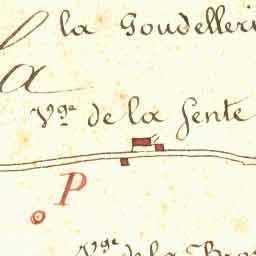 la Goudelleri
la
Vge de la Sente
P
Vge de la Bro